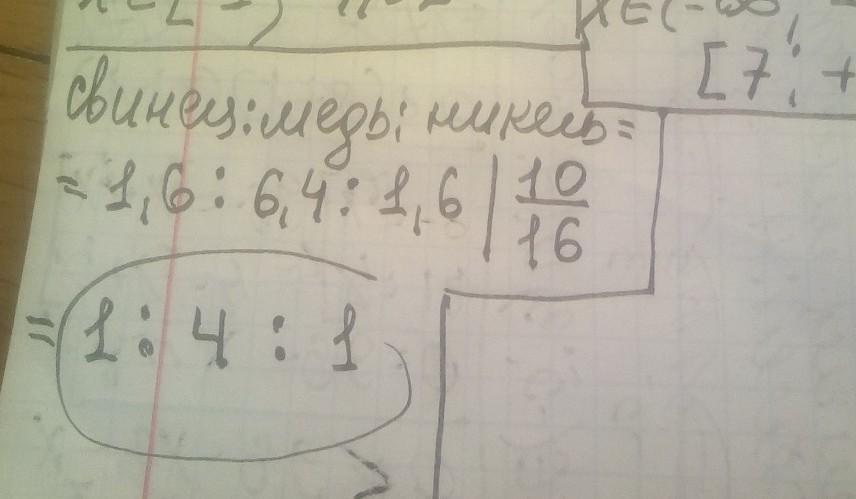 [7; +
свинец:медь:никель=
= 1,6 : 6,4 : 1,6 | 10/16
= 1 : 4 : 1